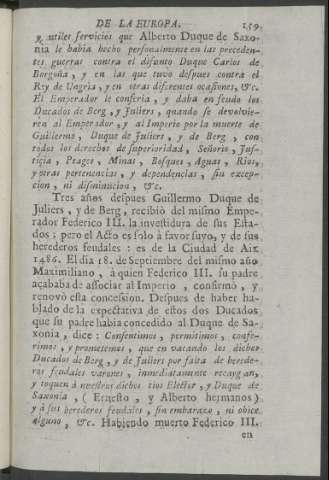 DE LA EUROPA. 159
y utiles servicios que Alberto Duque de Saxo-
nia le habia hecho personalmente en las preceden-
tes guerras contra el difunto Duque Carlos de
Borgoña, y en las que tuvo despues contra el
Rey de Ungria, y en otras diferentes ocasiones, &c.
El Emperador le conferia, y daba en feudo los
Ducados de Berg, y Juliers, quando se devolvie-
ren al Emperador, y al Imperio por la muerte de
Guillermo, Duque de Juliers, y de Berg, con
todos los derechos de superioridad, Señorio, Jus-
ticia, Peages, Minas, Bosques, Aguas, Rios,
y otras pertenencias, y dependencias, sin excep-
cion, ni disminucion, &c.
Tres años despues Guillermo Duque de
Juliers, y de Berg, recibiò del mismo Empe-
rador Federico III. la investidura de sus Esta-
dos; pero el Acto es solo à favor suyo, y de sus
herederos feudales: es de la Ciudad de Aix
1486. El dia 18. de Septiembre del mismo año
Maximiliano, à quien Federico III. su padre
acababa de associar al Imperio, confirmò, y
renovò esta concession. Despues de haber ha-
blado de la expectativa de estos dos Ducados
que su padre habia concedido al Duque de Sa-
xonia, dice: Consentimos, permitimos, confe-
rimos, y prometemos, que en vacando los dichos
Ducados de Berg, y de Juliers por falta de herede-
ros feudales varones, inmediatamente recaygan,
y toquen à nuestros dichos tios Elector, y Duque de
Saxonia, (Ernesto, y Alberto hermanos)
y à sus herederos feudales, sin embarazo, ni obice
alguno, &c. Habiendo muerto Federico III.
en